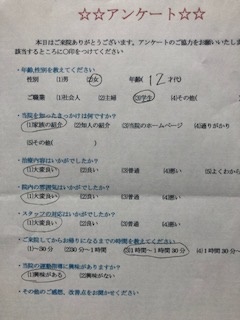 ☆☆アンケート☆☆
本日はご来院ありがとうございます。アンケートのご協力をお願いいたしま
該当するところに○印をつけてください
・年齢,性別を教えてください
性別 (1)男 (2)女 年齢( 12才代)
ご職業 (1)社会人 (2)主婦 (3)学生 (4)その他(
・当院を知ったきっかけは何ですか?
(1)家族の紹介 (2)知人の紹介 (3)当院のホームページ (4)通りがかり
(5)その他( )
・治療内容はいかがでしたか?
(1)大変良い (2)良い (3)普通 (4)悪い (5)よくわから
・院内の雰囲気はいかがでしたか?
(1)大変良い (2)良い (3)普通 (4)悪い
・スタッフの対応はいかがでしたか?
(1)大変良い (2)良い (3)普通 (4)悪い
・ご来院してからお帰りになるまでの時間を教えてください
(1)~30分 (2)30分~1時間 (3)1時間~1時間30分 (4)1時間30分~
・当院の運動指導に興味がありますか?
(1)興味がある (2)興味がない
・その他のご感想、改善点をお聞かせください